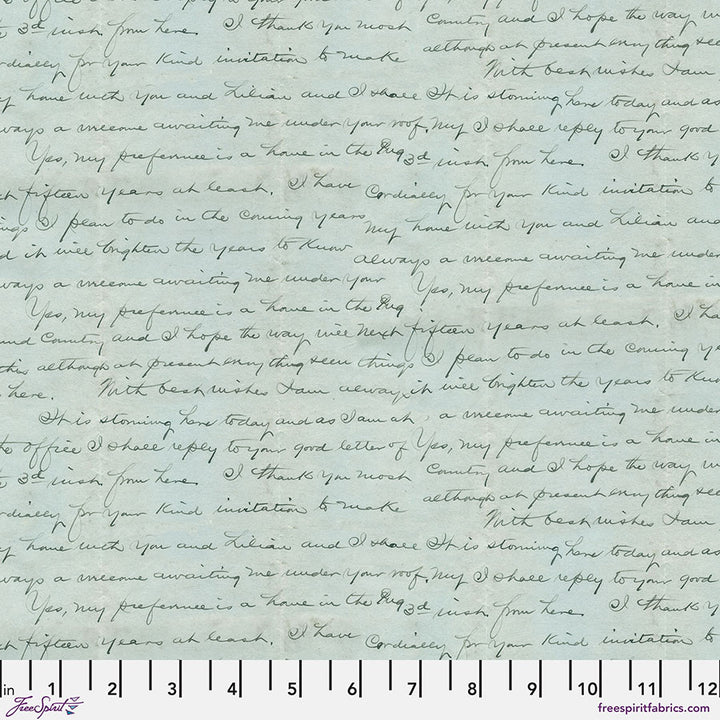 the office I shall reply to your good letter of
3d inst from here. I thank you most Country and I hope the way w
Cordially for your kind invitation to make although at present everything see
With best wishes I am
my home with you and Lilian and I shall It is storming here today and as
always a welcome awaiting me under your roof. My I shall reply to your good
Yes, my preference is a home in the 3d inst from here. I thank y
next fifteen years at least. I have Cordially for your kind invitation to
things I plan to do in the coming years my home with you and Lilian and
d it will brighten the years to know always a welcome awaiting me under
ways a welcome awaiting me under your Yes, my preference is a home in
Yes, my preference is a home in the
and Country and I hope the way will next fifteen years at least. I ha
this although at present everything seen things I plan to do in the coming ye
here. With best wishes I am always it will brighten the years to know
It is storming here today and as I am at a welcome awaiting me under
the office I shall reply to your good letter of Yes, my preference is a home in
3d inst from here. I thank you most Country and I hope the way w
rdially for your kind invitation to make although at present everything see
With best wishes I am
y home with you and Lilian and I shall It is storming here today and as
ways a welcome awaiting me under your roof. My I shall reply to your good
Yes, my preference is a home in the 3d inst from here. I thank y
xt fifteen years at least. I have Cordially for your kind invitation to
in 1 2 3 4 5 6 7 8 9 10 11 12
FreeSpirit
freespiritfabrics.com